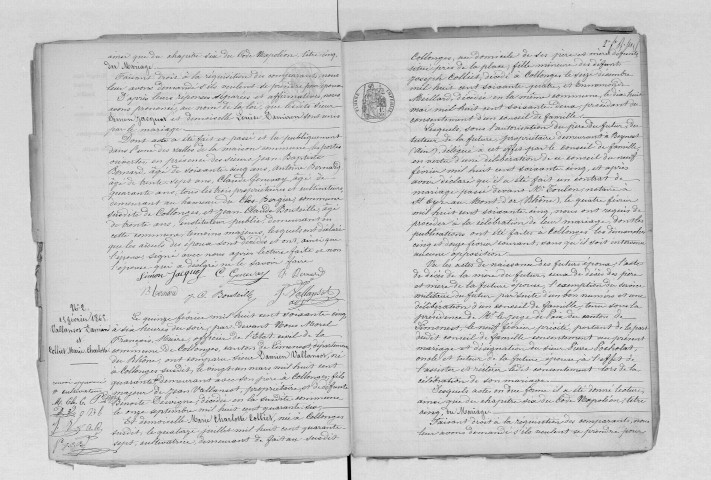 ainsi que du chapitre six du Code Napoléon, titre cinq
du Mariage.
Faisant droit à la réquisition des comparants, nous
leur avons demandé s'ils veulent se prendre pour époux
et après leurs réponses séparées et affirmatives, nous
avons prononcé, au nom de la loi, que les dits sieur
Simon Jacquet et demoiselle sont unis
par le mariage.
Dont acte a été fait et passé et lu publiquement
dans l'une des salles de la maison commune, les portes
ouvertes, en présence des sieurs Jean Baptiste
âgé de soixante cinq ans, Antoine
âgé de trente sept ans, Claude âgé de
quarante ans, tous les trois propriétaires et cultivateurs,
demeurant au hameau du commune
susdite de Collonges, et Jean Claude Bouteille, âgé
de trente ans, instituteur public, demeurant en
cette commune, témoins majeurs, lesquels ont déclaré
que les aïeuls des époux sont décédés et ont, ainsi que
l'époux, signé avec nous après lecture faite, et non
l'épouse qui a déclaré ne le savoir faire.
Simon Jacquet
J. C. Bouteille J. Vallanset
N° 2
15 février 1865
Vallanset Damien
et
Collier Marie Charlotte
Le quinze février mil huit cent soixante cinq
à six heures du soir, par devant Nous Morel
François Marie, officier de l'État civil de la
commune de Collonges, canton de Limonest, département
du Rhône, ont comparu sieur Damien Vallanset, né
à Collonges susdit, le vingt un mars mil huit cent
quarante, demeurant avec son père à Collonges, fils
majeur de Jean Vallanset, propriétaire, et de défunte
Benoite décédée en la susdite commune
le onze septembre mil huit cent quarante six,
Et demoiselle Marie Charlotte Collier, née à Collonges
susdit, le quatorze juillet mil huit cent quarante
sept, cultivatrice demeurant de fait au susdit
Collonges, au domicile de ses père et mère défunts
fille mineure des défunts
Joseph Collier, décédé à Collonges le seize
mil huit cent soixante quatre, et
décédée en la même commune, le dix huit
mil huit cent soixante deux, procédant du
consentement d'un conseil de famille.
Lesquels, sous l'autorisation du père du futur, du
tuteur de la future, propriétaire demeurant à Beynost
(Ain), délégué à cet effet par le conseil de famille,
en vertu d'une délibération de ce conseil du neuf
février mil huit cent soixante cinq, et après
avoir déclaré qu'il a été fait un contrat de
mariage passé devant Me notaire à
St Cyr au Mont d'Or (Rhône), le quatre février
mil huit cent soixante cinq, nous ont requis de
procéder à la célébration de leur mariage, dont les
publications ont été faites à Collonges les dimanches
cinq et douze février courant, sans qu'il soit intervenu
aucune opposition.
Vu les actes de naissance des futurs époux, l'acte
de décès de la mère du futur, ceux de décès des père
et mère de la future épouse, l'exemption du service
militaire du futur, par suite d'un bon numéro, et une
délibération d'un conseil de famille, tenu sous la
présidence de Mr le Juge de Paix du canton de
Limonest, le neuf février précité, portant de la part
dudit conseil de famille consentement au présent
mariage et délégation du sieur Pierre
oncle et tuteur de la future épouse, à l'effet de
l'assister et réitérer ledit consentement lors de la
célébration de son mariage.
Desquels actes en due forme il a été donné lecture
ainsi que du chapitre six du Code Napoléon, titre
cinq du Mariage.
Faisant droit à la réquisition des comparants, nous
leur avons demandé s'ils veulent se prendre pour